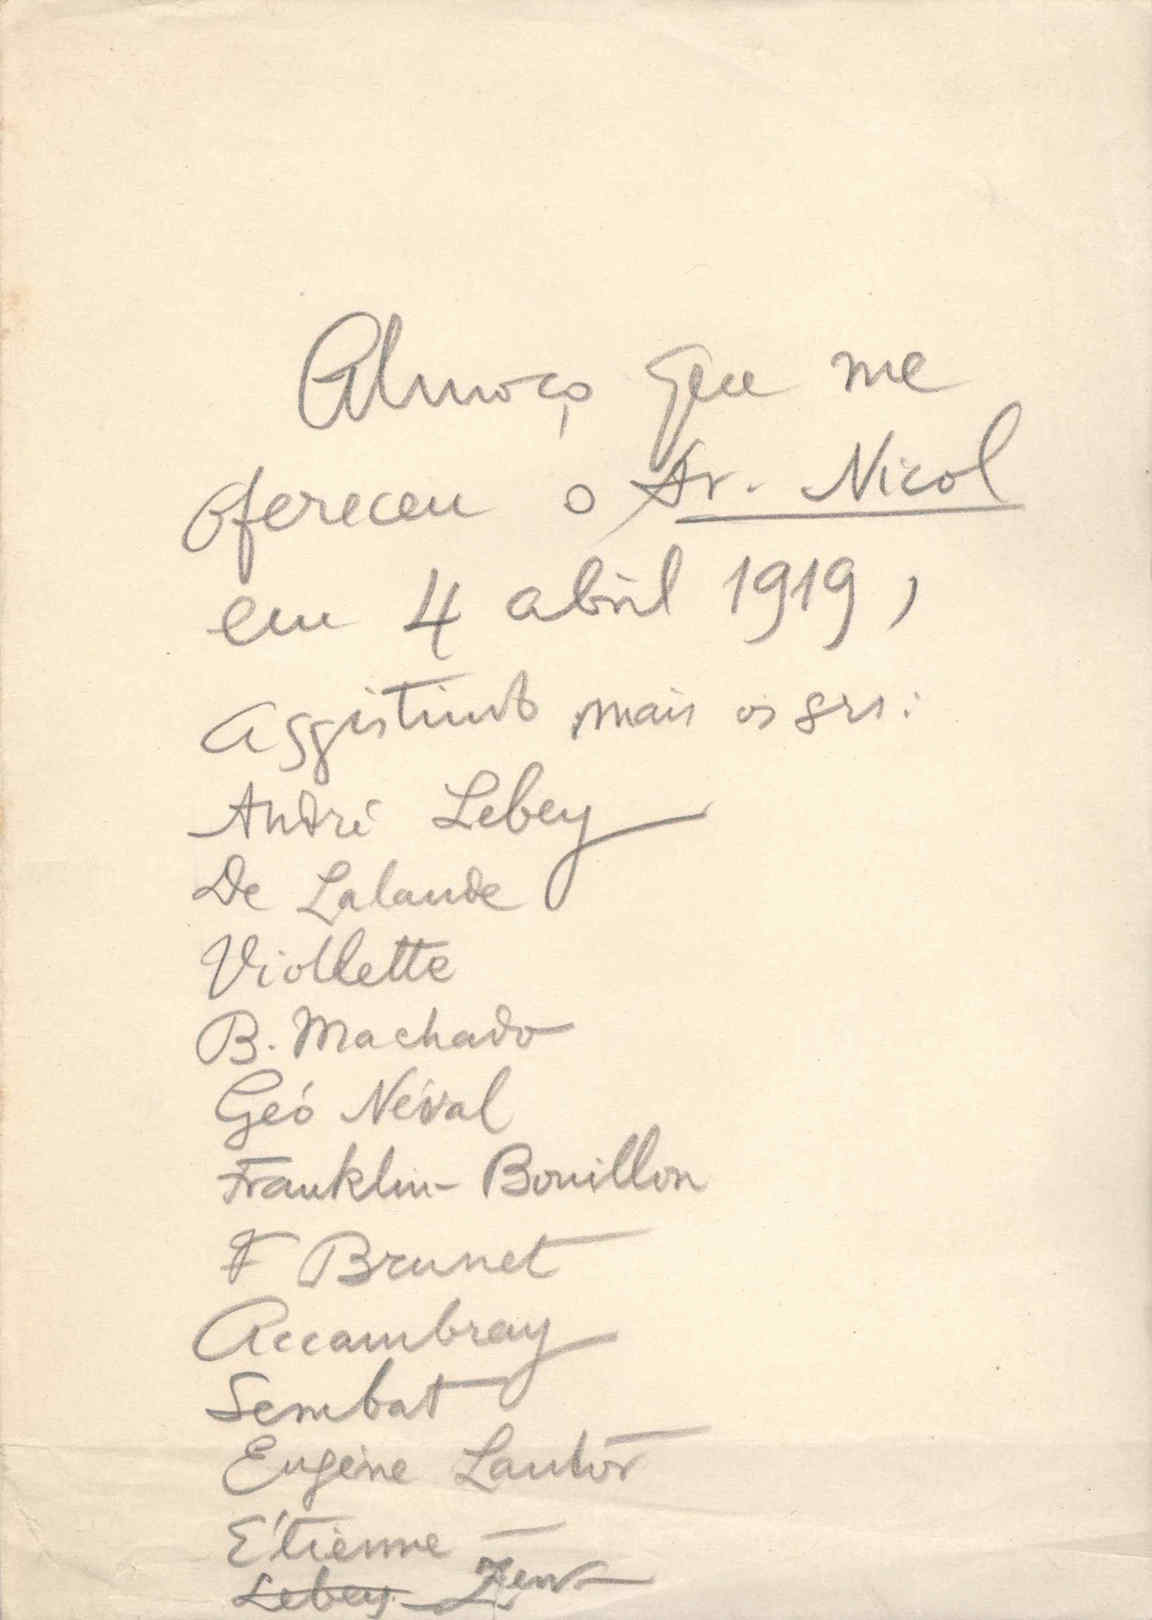 Almoço que me
ofereceu o Sr. Nicol
em 4 abril 1919,
assistindo mais os srs:
André Lebey
De Lalande
Viollette
B. Machado
Géo Néval
Franklin-Bouillon
F Brunet
Accambray
Sembat
Eugène
Étienne
Lebey